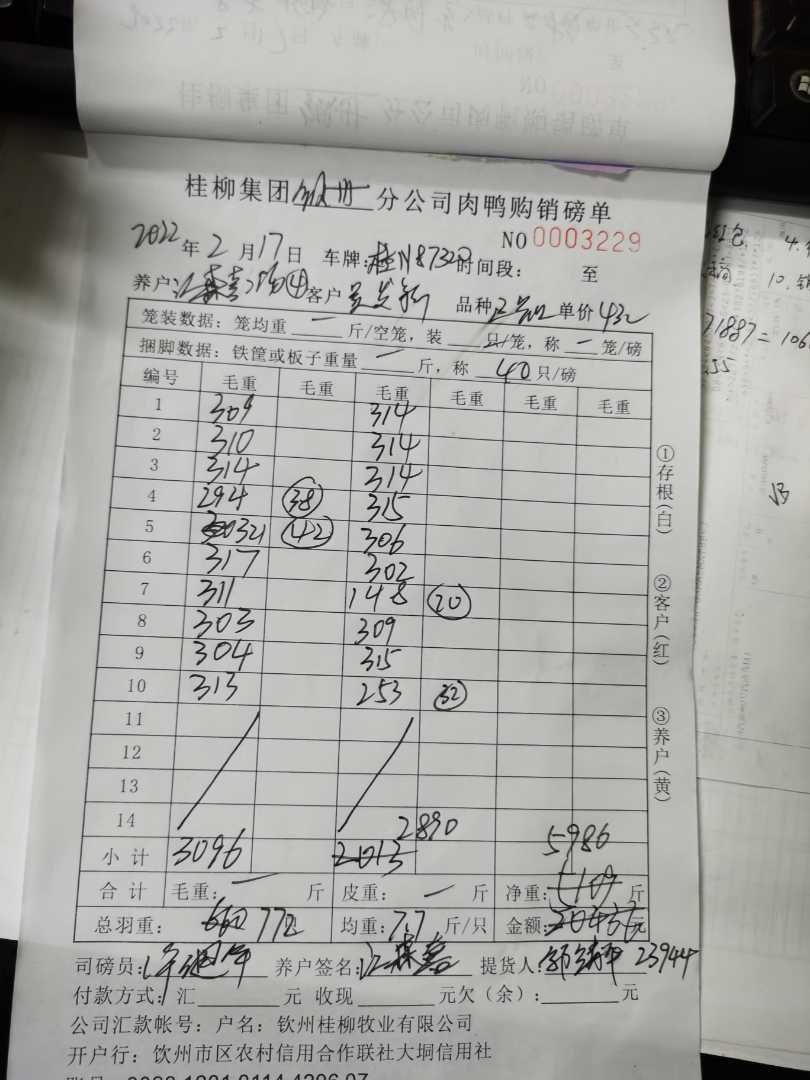 桂柳集团钦州分公司肉鸭购销磅单
NO 0003229
2022年2月17日 车牌:桂N8732 时间段: 至
养户:江森喜 ④ 客户 品种 单价 432
笼装数据:笼均重 一 斤/空笼,装 只/笼,称 一 笼/磅
捆脚数据:铁筐或板子重量 一 斤,称 40 只/磅
编号 毛重 毛重 毛重 毛重 毛重 毛重
1 309 314
2 310 314
3 314 314
4 294 38 315
5 321 42 306
6 317 302
7 311 148 20
8 303 309
9 304 315
10 313 253 32
11
12
13
14 2890
小计 3096 2013 5986
合计 毛重: 一 斤 皮重: 一 斤 净重: 5109 斤
总羽重: 660 772 均重: 7.7 斤/只 金额: 元
司磅员: 养户签名:江森喜 提货人: 23944
付款方式:汇 元 收现 元欠(余): 元
公司汇款帐号:户名:钦州桂柳牧业有限公司
开户行:钦州市区农村信用合作联社大垌信用社
①存根(白)
②客户(红)
③养户(黄)
红包
71887=